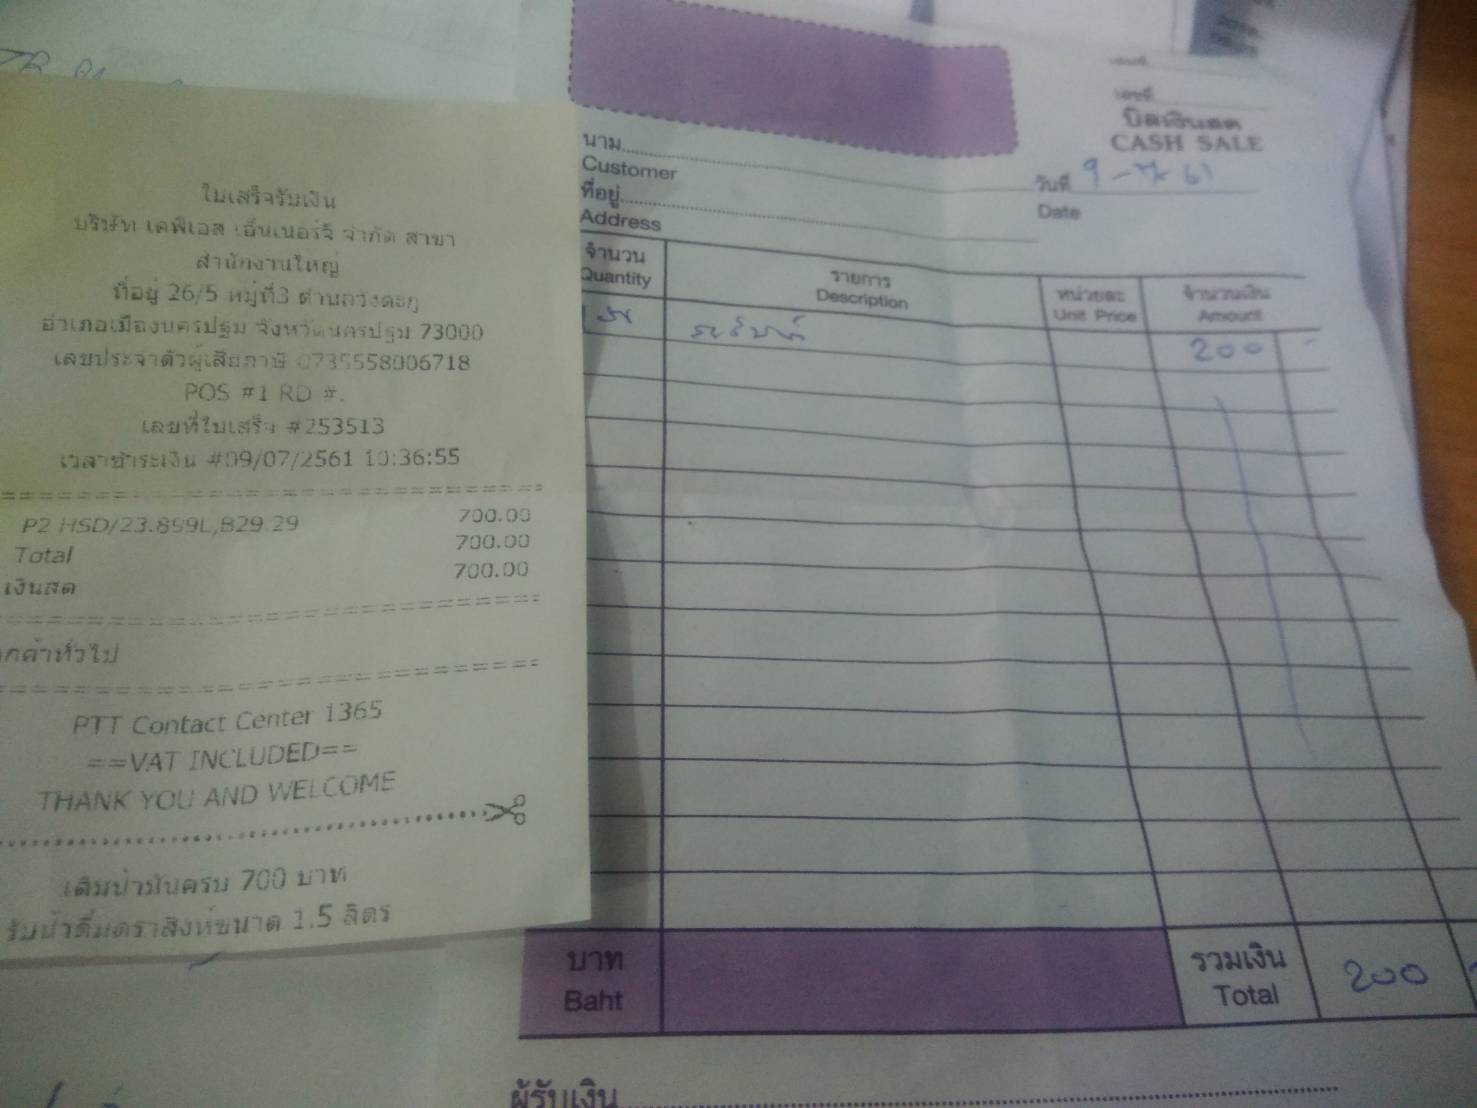 ใบเสร็จรับเงิน
บริษัท เคพีเอส เอ็นเนอร์จี จำกัด สาขา
สำนักงานใหญ่
ที่อยู่ 26/5 หมู่ที่3 ตำบลวังตะกู
อำเภอเมืองนครปฐม จังหวัดนครปฐม 73000
เลขประจำตัวผู้เสียภาษี 0735558006718
POS #1 RD #.
เลขที่ใบเสร็จ #253513
เวลาชำระเงิน #09/07/2561 10:36:55
P2 HSD/23.899L,B29.29 700.00
Total 700.00
เงินสด 700.00
กค้าทั่วไป
PTT Contact Center 1365
==VAT INCLUDED==
THANK YOU AND WELCOME
เติมน้ำมันครบ 700 บาท
รับน้ำดื่มตราสิงห์ขนาด 1.5 ลิตร
เลขที่
บิลเงินสด
CASH SALE
นาม
Customer
วันที่ 9 - 7 - 61
Date
ที่อยู่
Address
จำนวน รายการ หน่วยละ จำนวนเงิน
Quantity Description Unit Price Amount
200 -
บาท รวมเงิน 200
Baht Total
ผู้รับเงิน